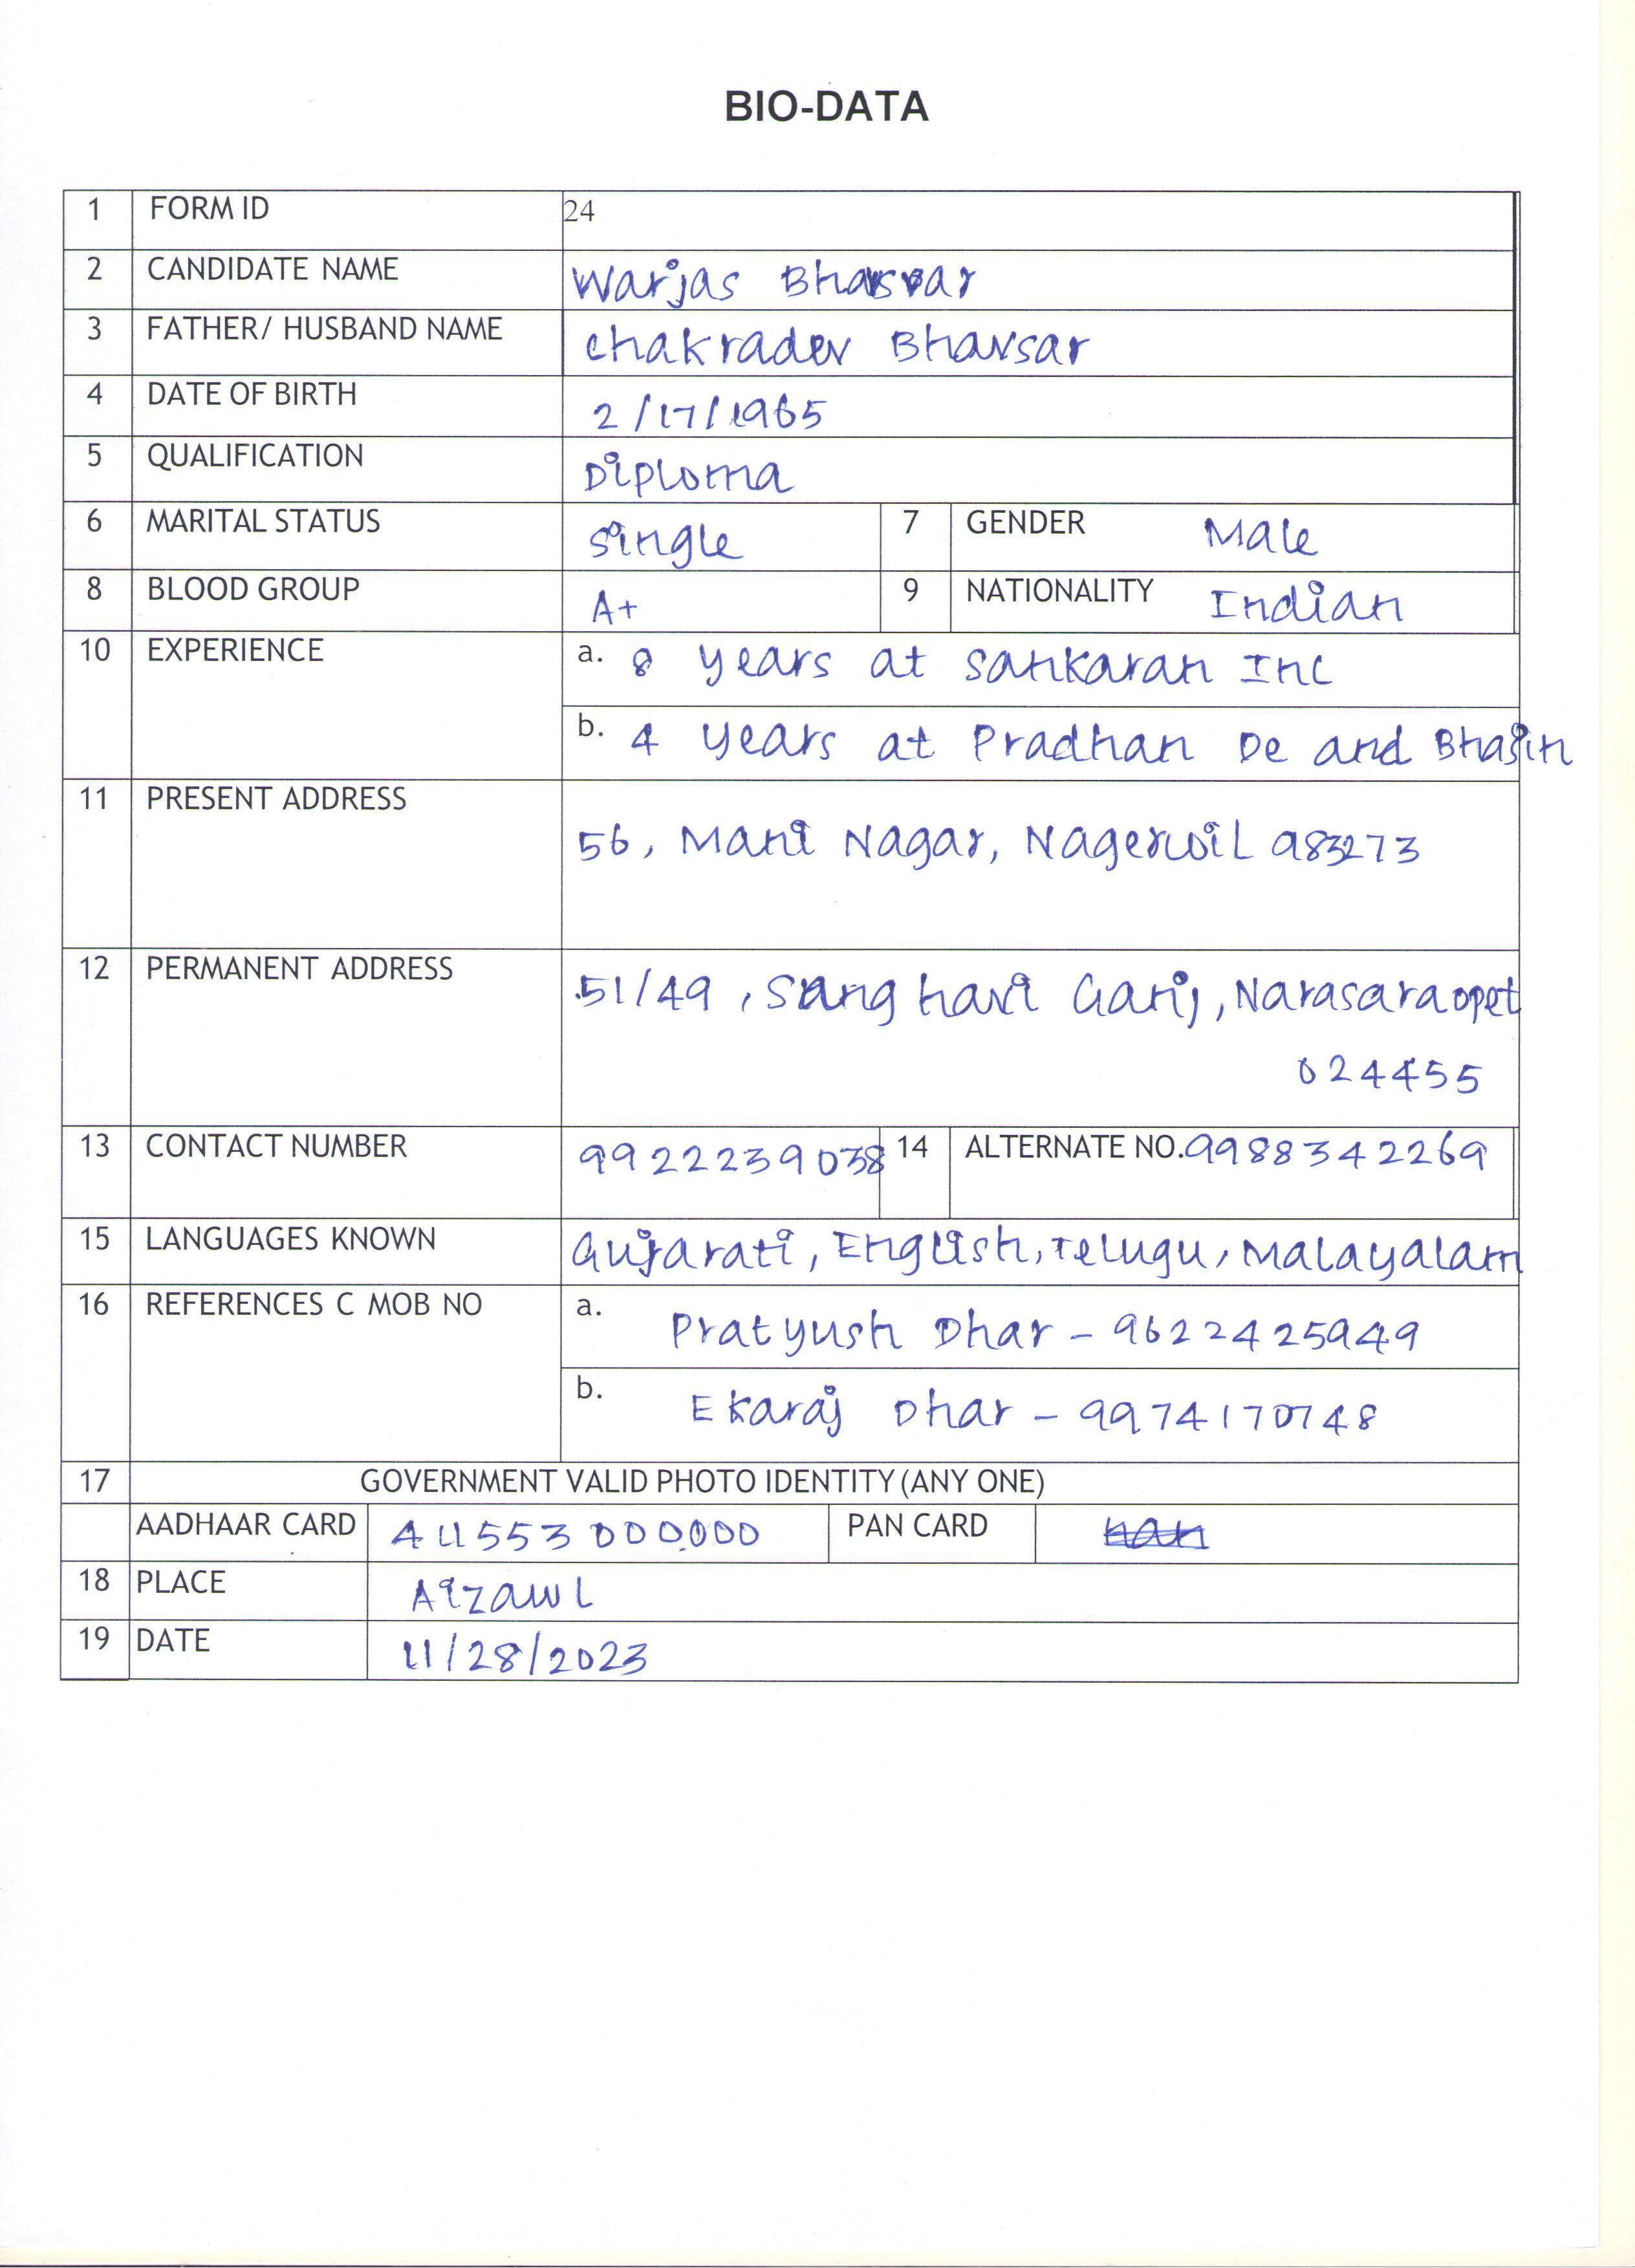 BIO-DATA
1 FORM ID 24
2 CANDIDATE NAME Warjas Bhavsar
3 FATHER/ HUSBAND NAME Chakradev Bhavsar
4 DATE OF BIRTH 2/17/1965
5 QUALIFICATION Diploma
6 MARITAL STATUS Single 7 GENDER Male
8 BLOOD GROUP A+ 9 NATIONALITY Indian
10 EXPERIENCE a. 8 years at Sankaran Inc
b. 4 years at Pradhan De and Bhasin
11 PRESENT ADDRESS
56, Mani Nagar, Nagercoil 983273
12 PERMANENT ADDRESS 51/49, Sanghavi Ganj, Narasaraopet
024455
13 CONTACT NUMBER 9922239038 14 ALTERNATE NO. 9988342269
15 LANGUAGES KNOWN Gujarati, English, Telugu, Malayalam
16 REFERENCES C MOB NO a. Pratyush Dhar - 9622425949
b. Ekaraj Dhar - 9974170748
17 GOVERNMENT VALID PHOTO IDENTITY (ANY ONE)
AADHAAR CARD 411553000000 PAN CARD
18 PLACE Aizawl
19 DATE 11/28/2023